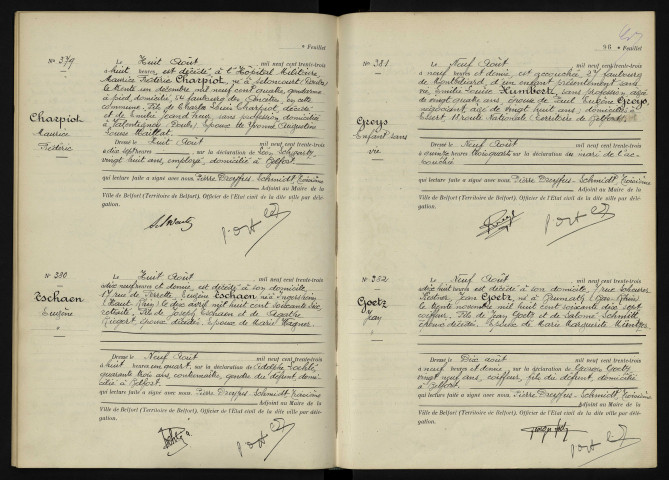 * Feuillet
N° 379
Le Huit Août mil neuf cent trente-trois
à huit heures, est décédé à l'Hôpital Militaire,
Maurice Frédéric Charpiot, né à Seloncourt (Doubs)
le trente un décembre mil neuf cent quatre, gendarme
à pied, domicilié, 24 faubourg des Ancêtres, en cette
commune, fils de Charles Louis Charpiot, décédé
et de Emilie Jeand'heur, sans profession, domiciliée
à Valentigney (Doubs), époux de Yvonne
Louise Maillat.
Charpiot
Maurice
Frédéric
Dressé le Huit Août mil neuf cent trente-trois
à dix sept heures sur la déclaration de Léon Schwartz
vingt huit ans, employé, domicilié à Belfort
qui lecture faite a signé avec nous, Pierre Dreyfus-Schmidt, troisième
Adjoint au Maire de la
Ville de Belfort (Territoire de Belfort). Officier de l'Etat civil de la dite ville par délé-
gation.
N° 380
Le Huit Août mil neuf cent trente-trois
à dix neuf heures et demie, est décédé à son domicile,
17 rue de Verrelle, Eugène Eschaen, né à Ingersheim
(Haut-Rhin) le dix avril mil huit cent soixante dix
retraité, fils de Joseph Eschaen et de Agathe
Riegert, époux décédés. Epoux de Marie Wagner.
Eschaen
Eugène
Dressé le Neuf Août mil neuf cent trente-trois
à huit heures un quart, sur la déclaration de Adolphe
quarante trois ans, contremaître, gendre du défunt, domi-
cilié à Belfort
qui lecture faite a signé avec nous, Pierre Dreyfus-Schmidt, troisième
Adjoint au Maire de la
Ville de Belfort (Territoire de Belfort). Officier de l'Etat civil de la dite ville par délé-
gation.
96 * Feuillet
N° 381
Le Neuf Août mil neuf cent trente-trois
à neuf heures et demie, est accouchée 37 faubourg
de Montbéliard, d'un enfant présentement sans
vie Emilie Louise Humbert, sans profession, âgée
de vingt quatre ans, épouse de Paul Eugène Groys,
négociant, âgé de vingt huit ans, domiciliés à
11 route Nationale (Territoire de Belfort)
Groys
Enfant sans
vie
Dressé le Neuf Août mil neuf cent trente-trois
à quinze heures trois quart sur la déclaration du mari de l'ac-
couchée
qui lecture faite a signé avec nous, Pierre Dreyfus-Schmidt, troisième
Adjoint au Maire de la
Ville de Belfort (Territoire de Belfort). Officier de l'Etat civil de la dite ville par délé-
gation.
N° 382
Le Neuf Août mil neuf cent trente-trois
à dix huit heures est décédé à son domicile, 7 rue Scheurer
Kestner, Jean Goetz, né à Brumath (Bas-Rhin)
le trente novembre mil huit cent soixante dix sept
coiffeur, fils de Jean Goetz et de Salomé Schmidt,
époux décédés. Epoux de Marie Marguerite
Goetz
Jean
Dressé le Dix août mil neuf cent trente-trois
à neuf heures et demie, sur la déclaration de Georges Goetz
vingt neuf ans, coiffeur, fils du défunt, domicilié
à Belfort
qui lecture faite a signé avec nous, Pierre Dreyfus-Schmidt, troisième
Adjoint au Maire de la
Ville de Belfort (Territoire de Belfort). Officier de l'Etat civil de la dite ville par délé-
gation.